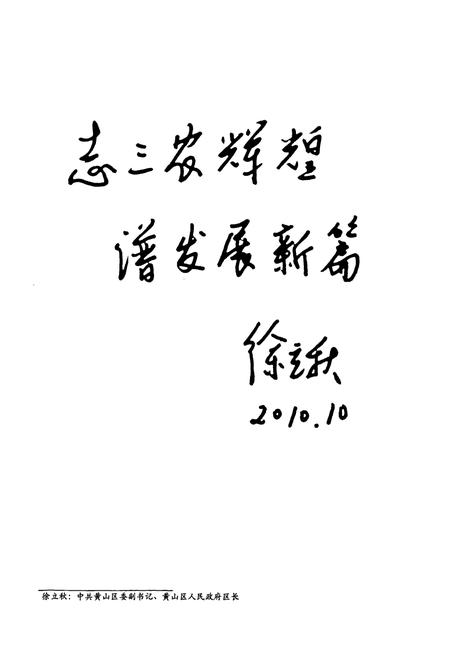 志三农辉煌
谱发展新篇
徐立秋
2010.10
徐立秋：中共黄山区委副书记、黄山区人民政府区长